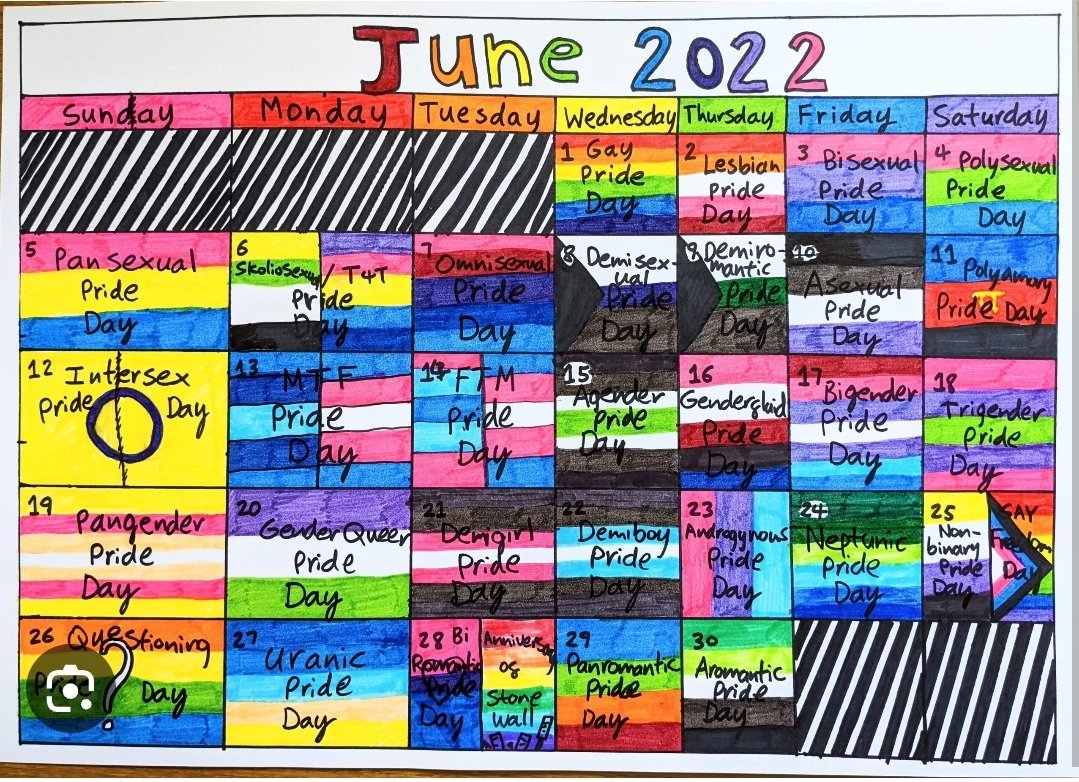 June 2022
Sunday Monday Tuesday Wednesday Thursday Friday Saturday
1 Gay
Pride
Day
2 Lesbian
Pride
Day
3 Bisexual
Pride
Day
4 Polysexual
Pride
Day
5 Pansexual
Pride
Day
6
Skoliosexual/T4T
Pride
Day
7 Omnisexual
Pride
Day
8 Demisex-
ual
Pride
Day
9 Demiro-
mantic
Pride
Day
10
Asexual
Pride
Day
11
Polyamory
Pride π Day
12 Intersex
Pride Day
13 MTF
Pride
Day
14 FTM
Pride
Day
15
Agender
Pride
Day
16
Genderfluid
Pride
Day
17
Bigender
Pride
Day
18
Trigender
Pride
Day
19
Pangender
Pride
Day
20
GenderQueer
Pride
Day
21
Demigirl
Pride
Day
22
Demiboy
Pride
Day
23
Androgynous
Pride
Day
24
Neptunic
Pride
Day
25
Non-
binary
Pride
Day
GAY
Freedom
Day
26 Questioning
Day ?
27
Uranic
Pride
Day
28 Bi
Romantic
Pride
Day
Anniversary
of
Stone
wall
29
Panromantic
Pride
Day
30
Aromantic
Pride
Day